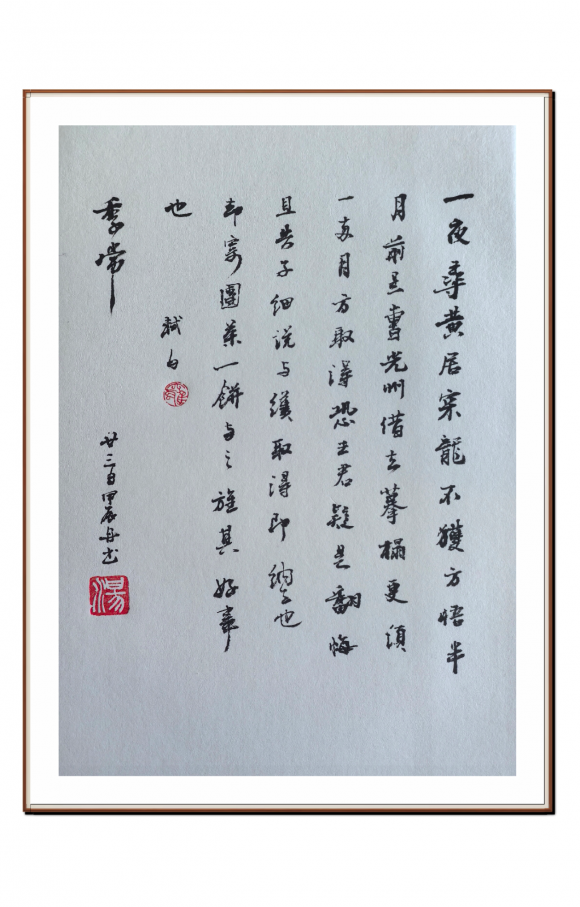 一夜尋黃居寀龍不獲方悟半
月前是曹光州借去摹搨更須
一兩月方取得恐王君疑是翻悔
且告子細說与纔取得即納去也
却寄團茶一餅与之旌其好事
也
軾白
季常
廿三日甲辰
湯